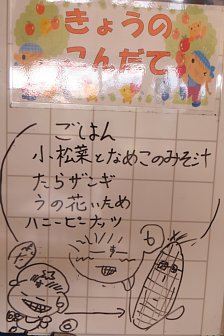 きょうの
こんだて
ごはん
小松菜となめこのみそ汁
たらザンギ
うの花いため
ハニーピーナッツ